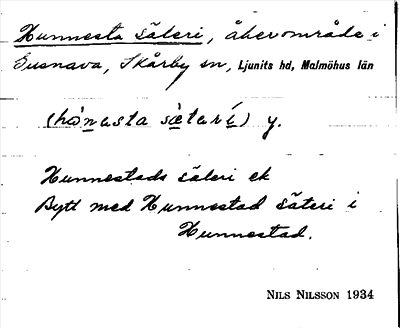 Hunnesta Säteri, åkerområde i
Susnava, Skårby sn, Ljunits hd, Malmöhus län
(hònasta sætarí) y.
Hunnestads säteri ek
Bytt med Hunnestad säteri i
Hunnestad.
NILS NILSSON 1934